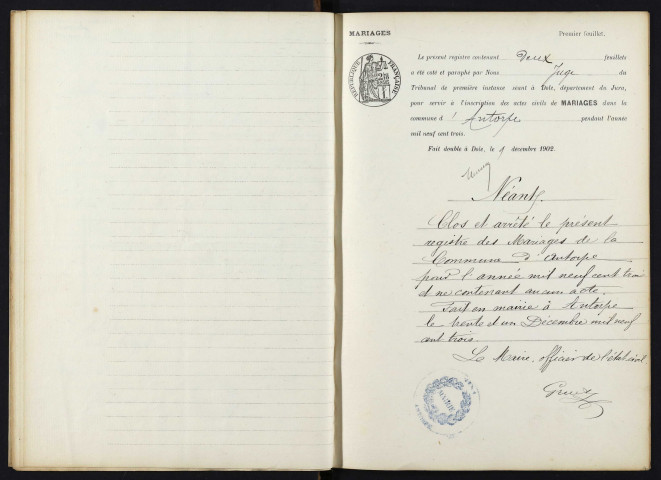 MARIAGES
Premier feuillet.
RÉPUBLIQUE FRANÇAISE
Le présent registre contenant Deux feuillets
a été coté et paraphé par Nous Juge du
Tribunal de première instance séant à Dole, département du Jura,
pour servir à l'inscription des actes civils de MARIAGES dans la
commune d'Antorpe pendant l'année
mil neuf cent trois.
Fait double à Dole, le 9 décembre 1902.
Néant.
Clos et arrêté le présent
registre des Mariages de la
Commune d'Antorpe
pour l'année mil neuf cent trois
et ne contenant aucun acte.
Fait en mairie à Antorpe
le trente et un Décembre mil neuf
cent trois.
Le Maire, officier de l'état civil